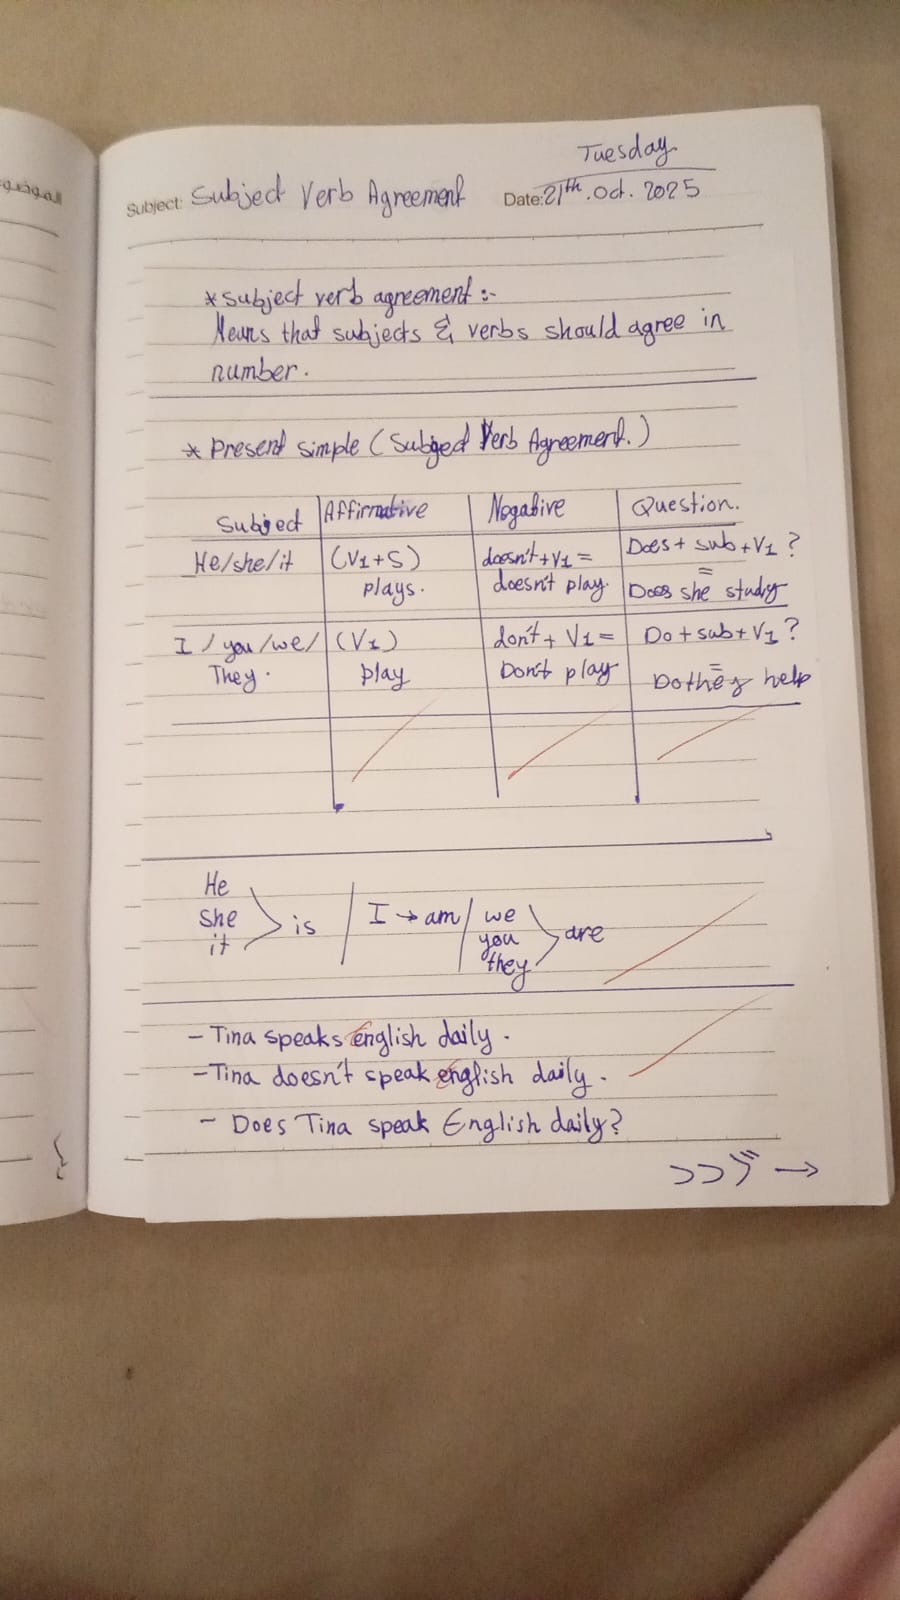 الموضوع
Tuesday
Subject: Subject Verb Agreement Date: 21th. Oct. 2025
* Subject verb agreement :-
Means that subjects & verbs should agree in
number.
* Present simple (Subject Verb Agreement.)
Subject Affirmative Negative Question.
He/she/it (V1+S) doesn't+V1= Does+ sub+V1?
plays. doesn't play. = Does she study
I / you/we/ (V1) don't + V1= Do+sub+V1?
They. play Don't play = Do they help
He
she
it
is
I → am
we
you
they
are
- Tina speaks English daily.
- Tina doesn't speak english daily.
- Does Tina speak English daily?